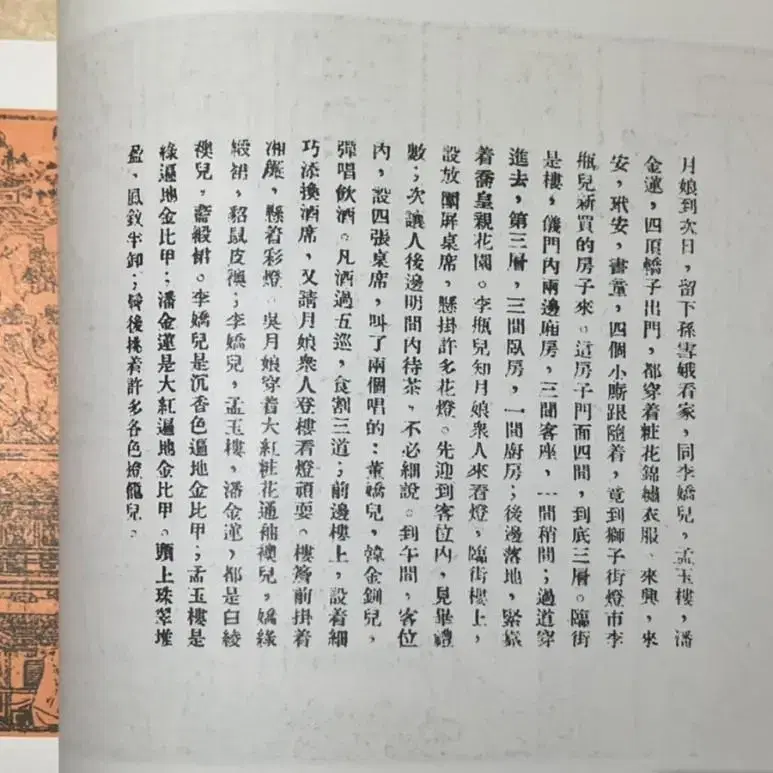 月娘到次日，留下孫雪娥看家，同李嬌兒，孟玉樓，潘
金蓮，四頂轎子出門，都穿着粧花錦繡衣服、來興，來
安，玳安，書童，四個小廝跟隨着，竟到獅子街燈市李
瓶兒新買的房子來。這房子門面四間，到底三層。臨街
是樓，儀門內兩邊廂房，三間客座，一間稍間；過道穿
進去，第三層，三間臥房，一間廚房；後邊落地，緊靠
着喬皇親花園。李瓶兒知月娘衆人來看燈，臨街樓上，
設放圍屏桌席，懸掛許多花燈。先迎到客位內，見畢禮
數；次讓人後邊明間內待茶，不必細說。到午間，客位
內，設四張桌席，叫了兩個唱的：董嬌兒，韓金釧兒，
彈唱飲酒。凡酒過五巡，食割三道；前邊樓上，設着細
巧添換酒席，又請月娘衆人登樓看燈頑耍。樓簷前掛着
湘簾，懸着彩燈。吳月娘穿着大紅粧花通袖襖兒，嬌綠
緞裙，貂鼠皮襖；李嬌兒，孟玉樓，潘金蓮，都是白綾
襖兒，藍緞裙。李嬌兒是沉香色遍地金比甲；孟玉樓是
綠遍地金比甲；潘金蓮是大紅遍地金比甲。頭上珠翠堆
盈，鳳釵半卸；鬢後挑着許多各色燈籠兒。